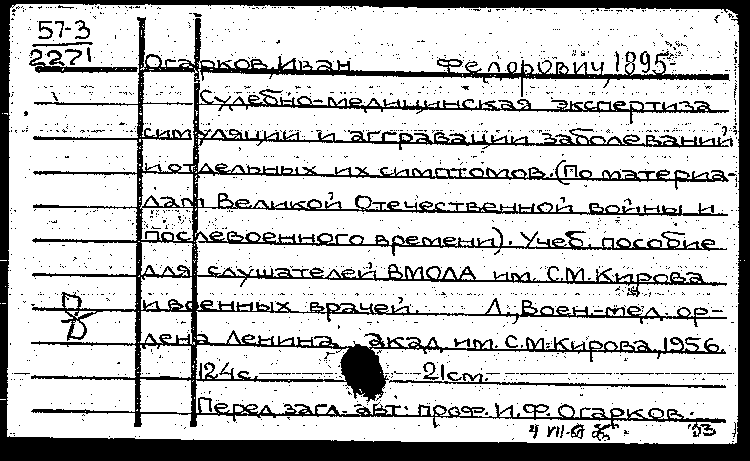 57-3
2271
Огарков, Иван Федорович, 1895-
Судебно-медицинская экспертиза
симуляции и аггравации заболеваний
и отдельных их симптомов. (По материа-
лам Великой Отечественной войны и
послевоенного времени). Учеб. пособие
для слушателей ВМОЛА им. С.М. Кирова
и военных врачей. Л., Воен.-мед. ор-
дена Ленина акад. им. С.М. Кирова, 1956.
124 с. 21 см.
Перед загл. авт: проф. И.Ф. Огарков.